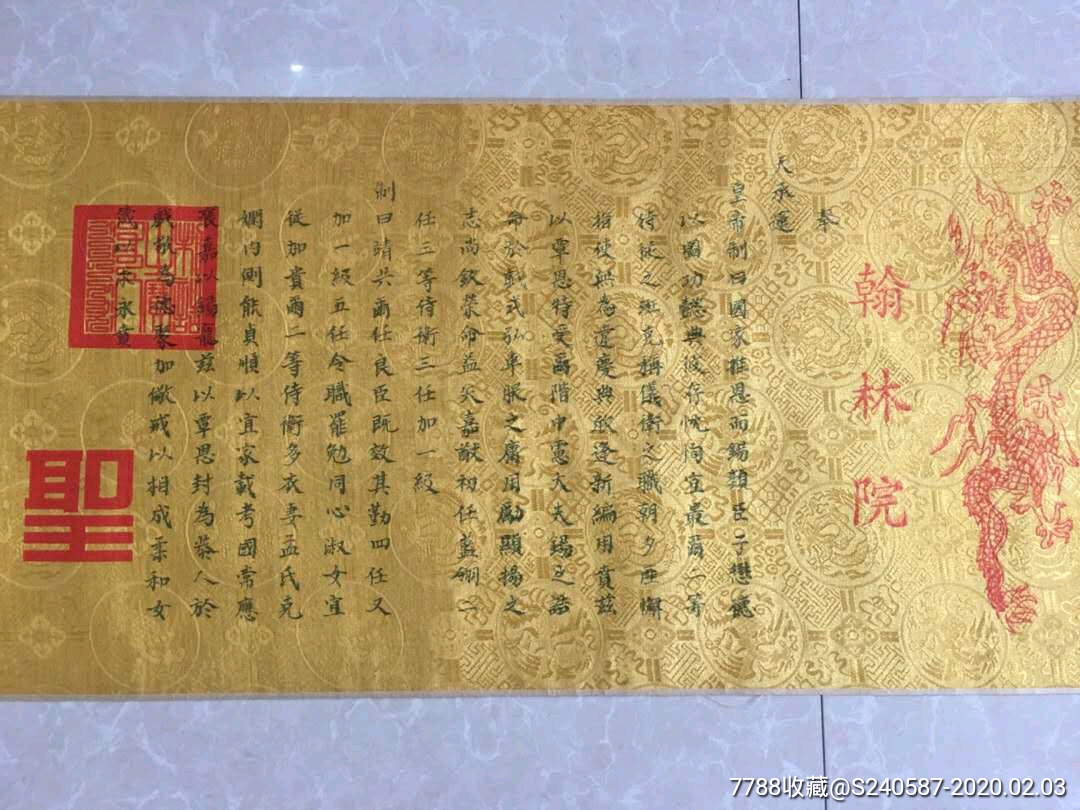 翰林院
奉
天承運
皇帝制曰國家推恩而錫類臣子懋德
以圖功懿典攸存忱恂宜最爾二等
侍從之班克稱儀衛之職朝夕匪懈
指使無愆遵慶典欣逢新編用賁茲
以覃恩特受爾階中憲大夫錫之誥
命於戲式弘車服之庸用勵顯揚之
志尚欽榮命益矢嘉猷初任藍翎二
任三等侍衛三任加一級
制曰靖共爾任良臣既效其勤四任又
加一級五任今職罷勉同心淑女宜
從加貴爾二等侍衛多衣妻孟氏克
嫻內則能貞順以宜家載考國常應
褒嘉以錫寵茲以覃恩封為恭人於
戲敬為聽家加儆戒以相成柔和女
以永貞
聖
7788收藏@S240587-2020.02.03